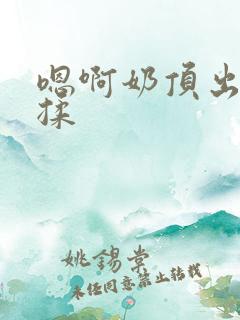 嗯啊奶頂出
揉
姚錫棠
未经同意禁止转载